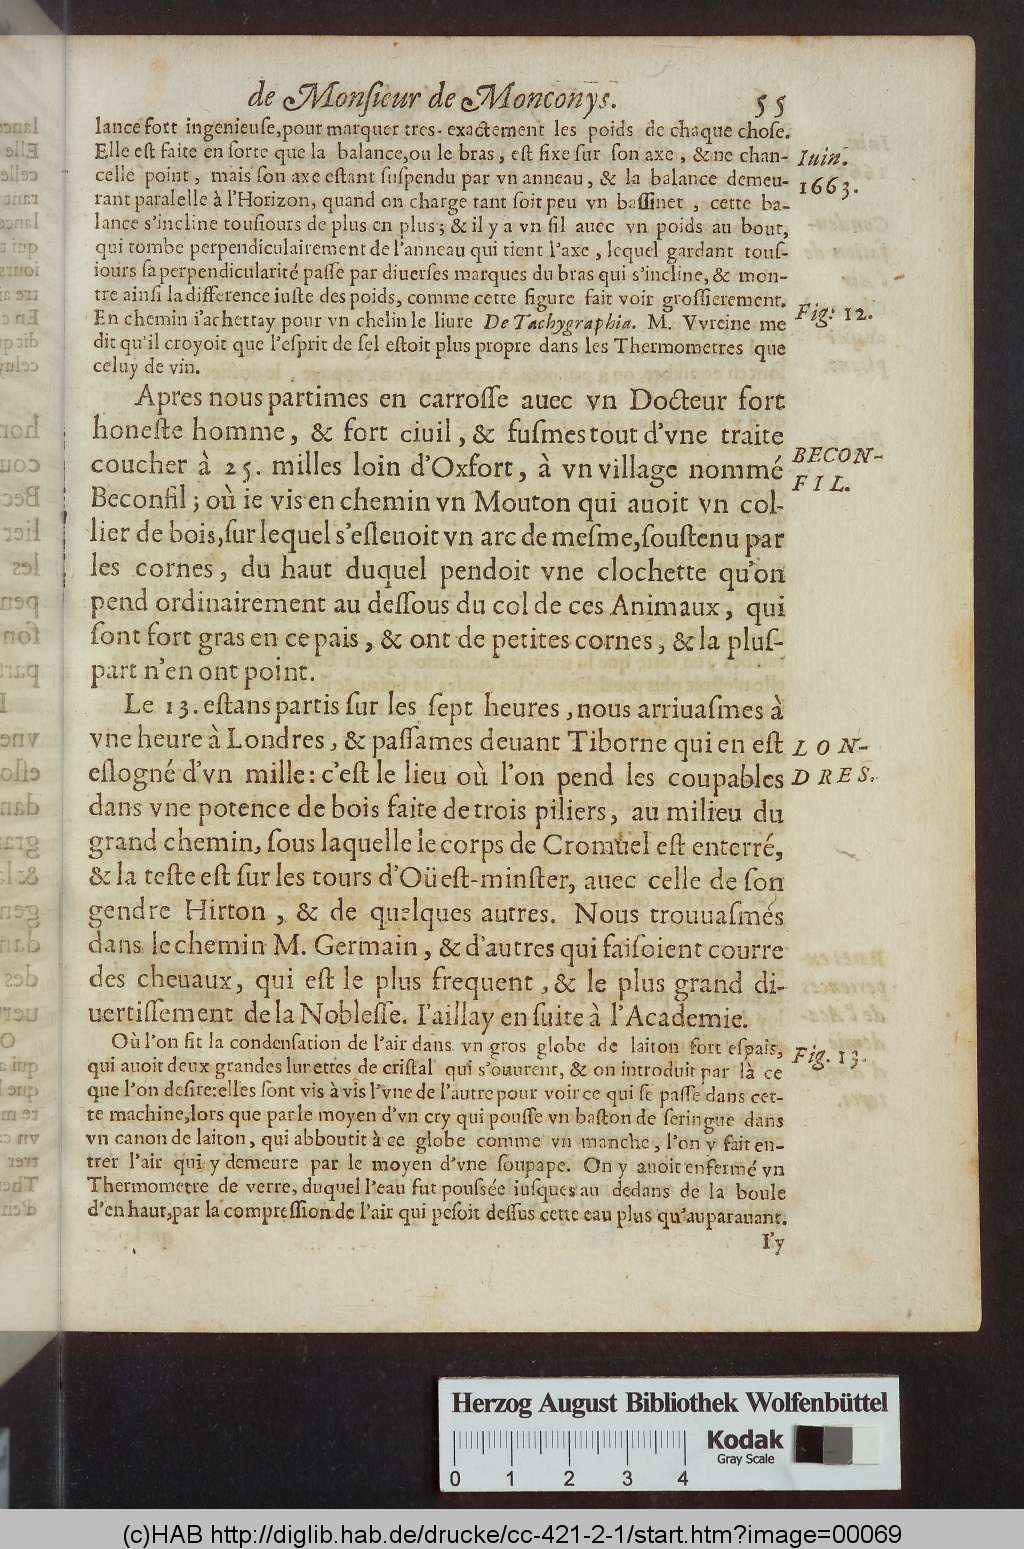 de Monſieur de Monconys. 55
lance fort ingenieuſe, pour marquer tres-exactement les poids de chaque choſe.
Elle eſt faite en ſorte que la balance, ou le bras, eſt fixe ſur ſon axe, & ne chan-
Iuin.
celle point, mais ſon axe eſtant ſuſpendu par vn anneau, & la balance demeu-
1663.
rant paralelle à l'Horizon, quand on charge tant ſoit peu vn baſſinet, cette ba-
lance s'incline touſiours de plus en plus; & il y a vn fil auec vn poids au bout,
qui tombe perpendiculairement de l'anneau qui tient l'axe, lequel gardant touſ-
iours ſa perpendicularité paſſe par diuerſes marques du bras qui s'incline, & mon-
tre ainſi la difference iuſte des poids, comme cette figure fait voir groſſierement.
Fig: 12.
En chemin i'achettay pour vn chelin le liure De Tachygraphia. M. Vvreine me
dit qu'il croyoit que l'eſprit de ſel eſtoit plus propre dans les Thermometres que
celuy de vin.
Apres nous partimes en carroſſe auec vn Docteur fort
honeſte homme, & fort ciuil, & fuſmes tout d'vne traite
BECON-
coucher à 25. milles loin d'Oxfort, à vn village nommé
FIL.
Beconfil; où ie vis en chemin vn Mouton qui auoit vn col-
lier de bois, ſur lequel s'eſleuoit vn arc de meſme, ſouſtenu par
les cornes, du haut duquel pendoit vne clochette qu'on
pend ordinairement au deſſous du col de ces Animaux, qui
ſont fort gras en ce pais, & ont de petites cornes, & la pluſ-
part n'en ont point.
Le 13. eſtans partis ſur les ſept heures, nous arriuaſmes à
vne heure à Londres, & paſſames deuant Tiborne qui en eſt
LON-
eſlogné d'vn mille: c'eſt le lieu où l'on pend les coupables
DRES.
dans vne potence de bois faite de trois piliers, au milieu du
grand chemin, ſous laquelle le corps de Cromüel eſt enterré,
& la teſte eſt ſur les tours d'Oüeſt-minſter, auec celle de ſon
gendre Hirton, & de quelques autres. Nous trouuaſmes
dans le chemin M. Germain, & d'autres qui faiſoient courre
des cheuaux, qui eſt le plus frequent, & le plus grand di-
uertiſſement de la Nobleſſe. I'aillay en ſuite à l'Academie.
Où l'on fit la condenſation de l'air dans vn gros globe de laiton fort eſpais,
Fig. 13.
qui auoit deux grandes lunettes de criſtal qui s'ouurent, & on introduit par là ce
que l'on deſire: elles ſont vis à vis l'vne de l'autre pour voir ce qui ſe paſſe dans cet-
te machine, lors que par le moyen d'vn cry qui pouſſe vn baſton de ſeringue dans
vn canon de laiton, qui abboutit à ce globe comme vn manche, l'on y fait en-
trer l'air qui y demeure par le moyen d'vne ſoupape. On y auoit enfermé vn
Thermometre de verre, duquel l'eau fut pouſſée iuſques au dedans de la boule
d'en haut, par la compreſſion de l'air qui peſoit deſſus cette eau plus qu'auparauant.
I'y
Herzog August Bibliothek Wolfenbüttel
Kodak
Gray Scale
0 1 2 3 4
(c)HAB http://diglib.hab.de/drucke/cc-421-2-1/start.htm?image=00069